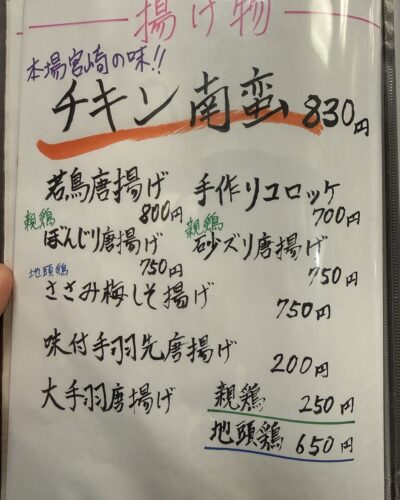 揚げ物
本場宮崎の味!!
チキン南蛮 830円
若鳥唐揚げ 800円
手作りコロッケ 700円
親鶏 ぼんじり唐揚げ 750円
親鶏 砂ズリ唐揚げ 750円
地頭鶏 ささみ梅しそ揚げ 750円
味付手羽先唐揚げ 200円
大手羽唐揚げ 親鶏 250円
地頭鶏 650円